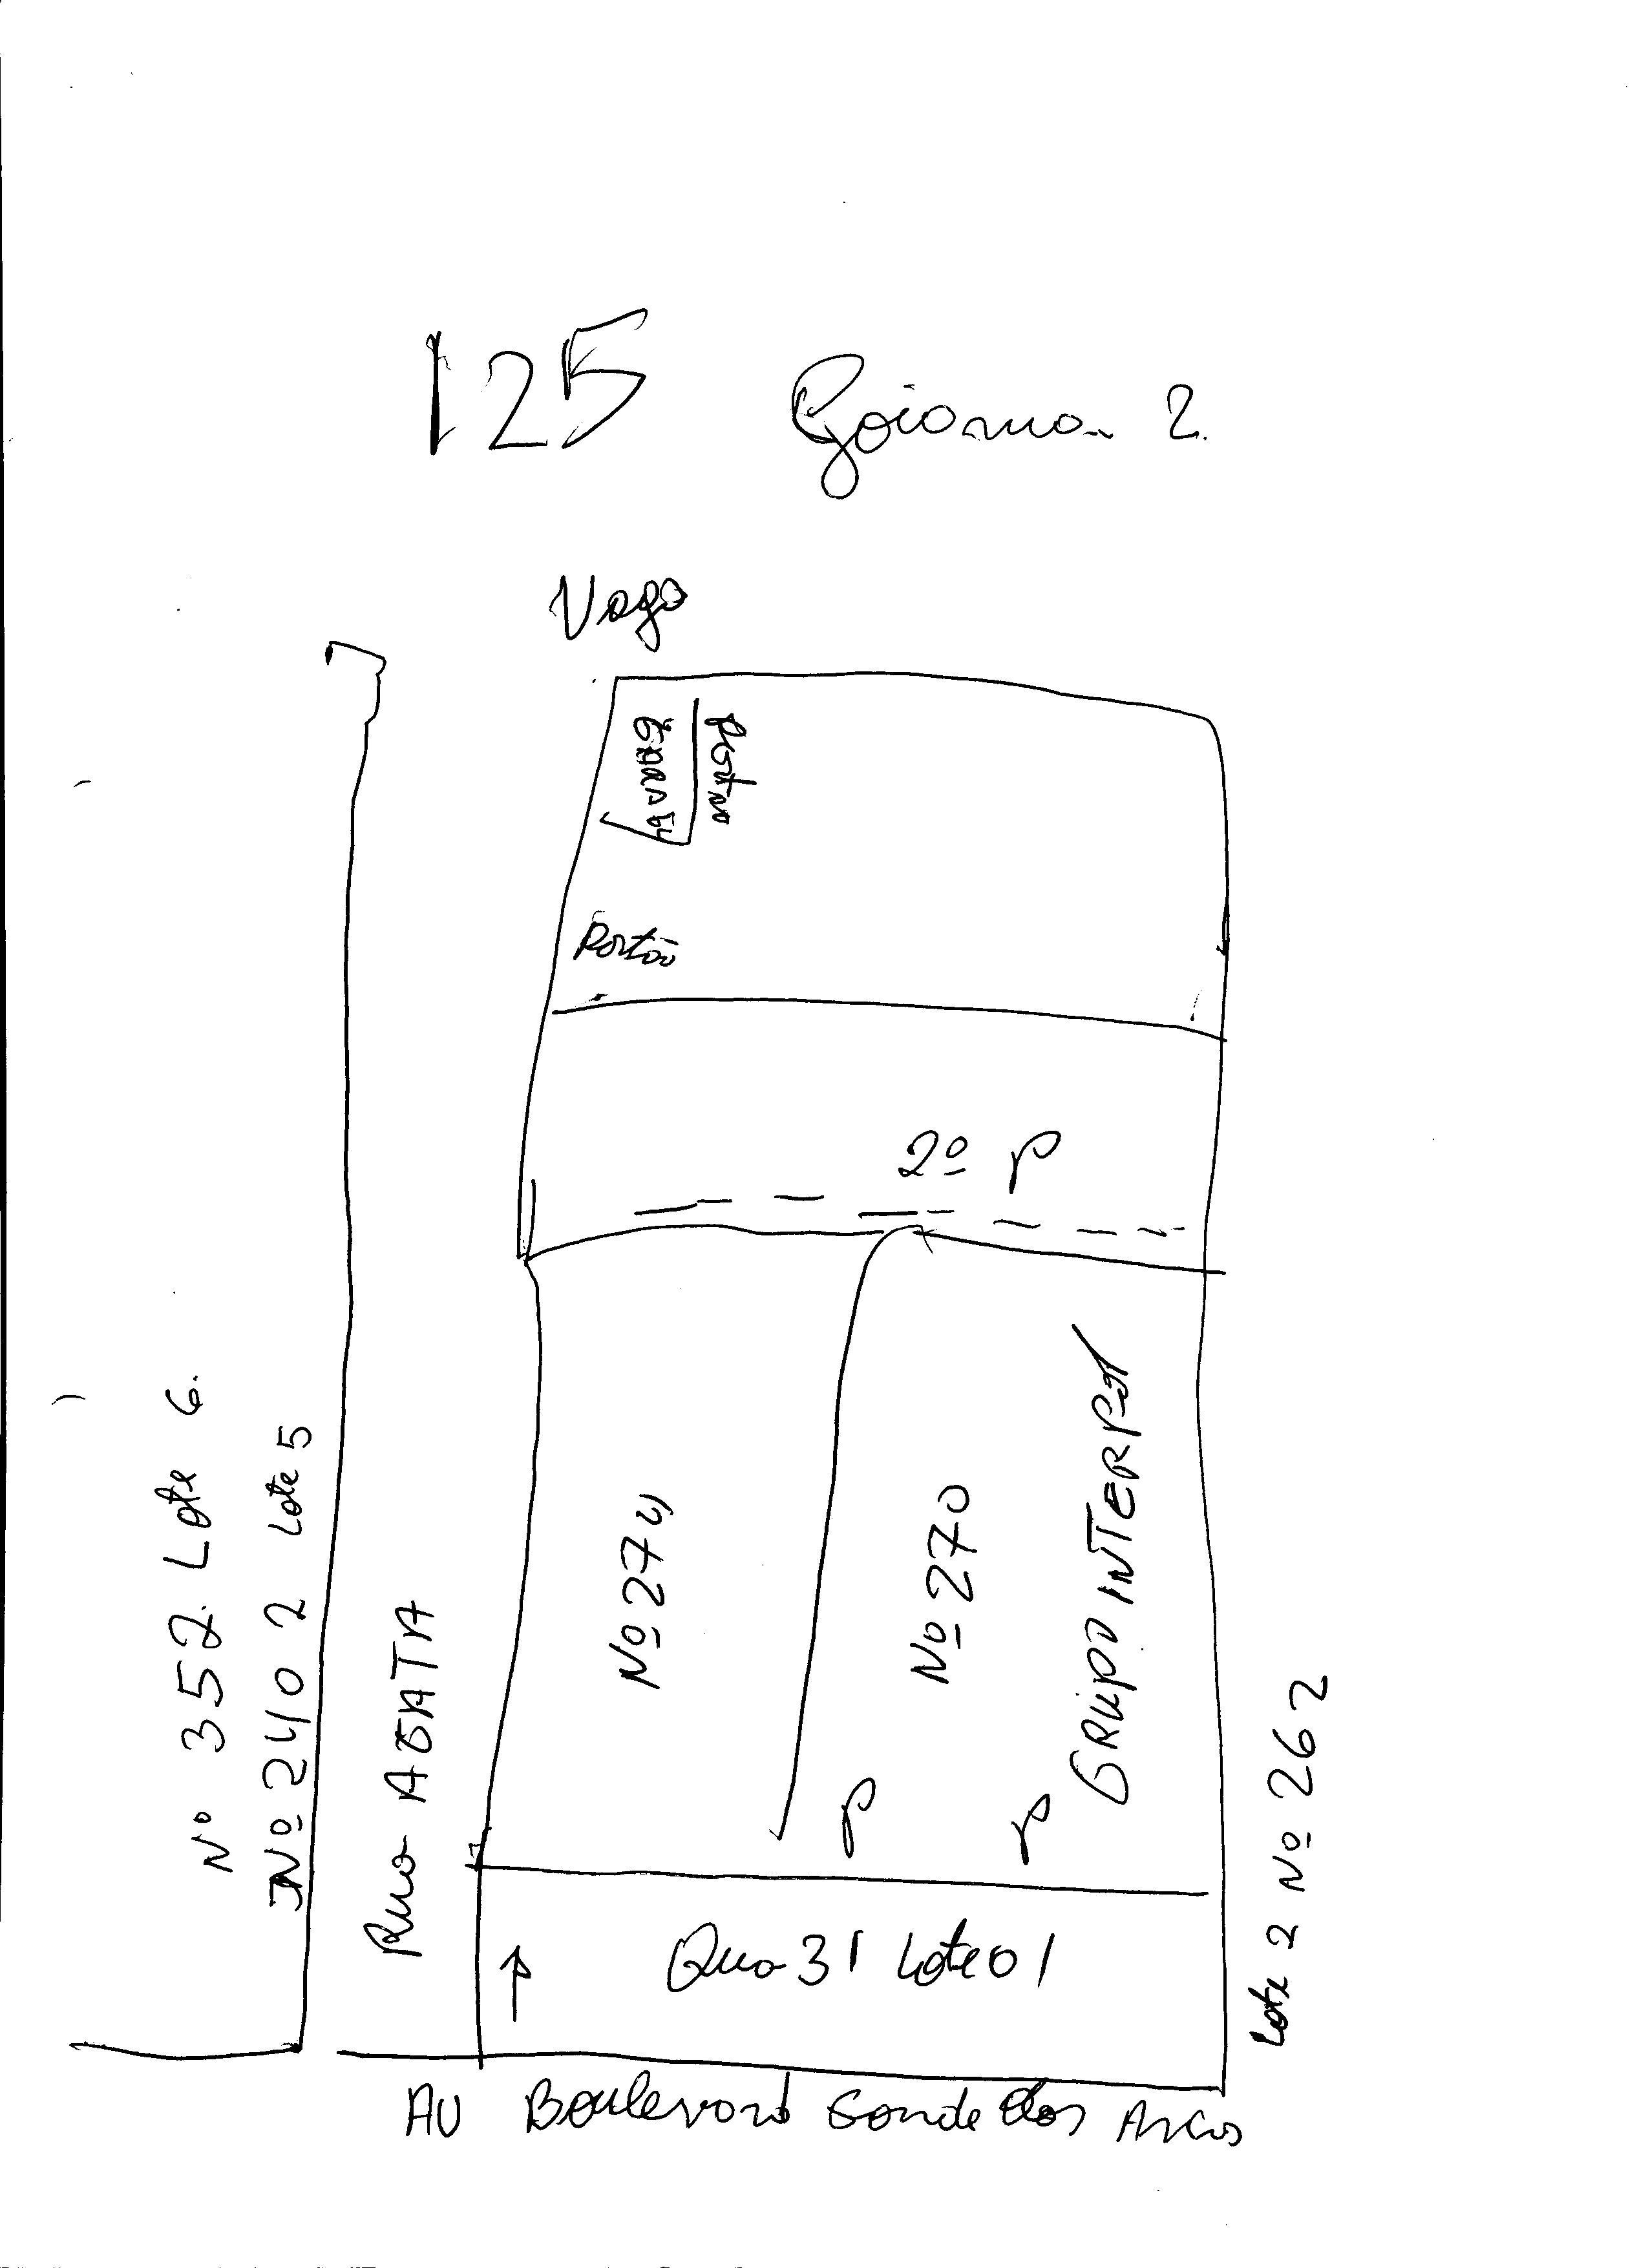 125 Goiania 2.
Vago
Portão
Portão
2º P
Nº 352. Lote 6.
Nº 240 2 Lote 5
Rua AGATA
Nº 274
Nº 270
GRUPO INTERPOT
P P
Qua 31 Lote 01
Lote 2 Nº 262
AV Boulevard Conde dos Arcos